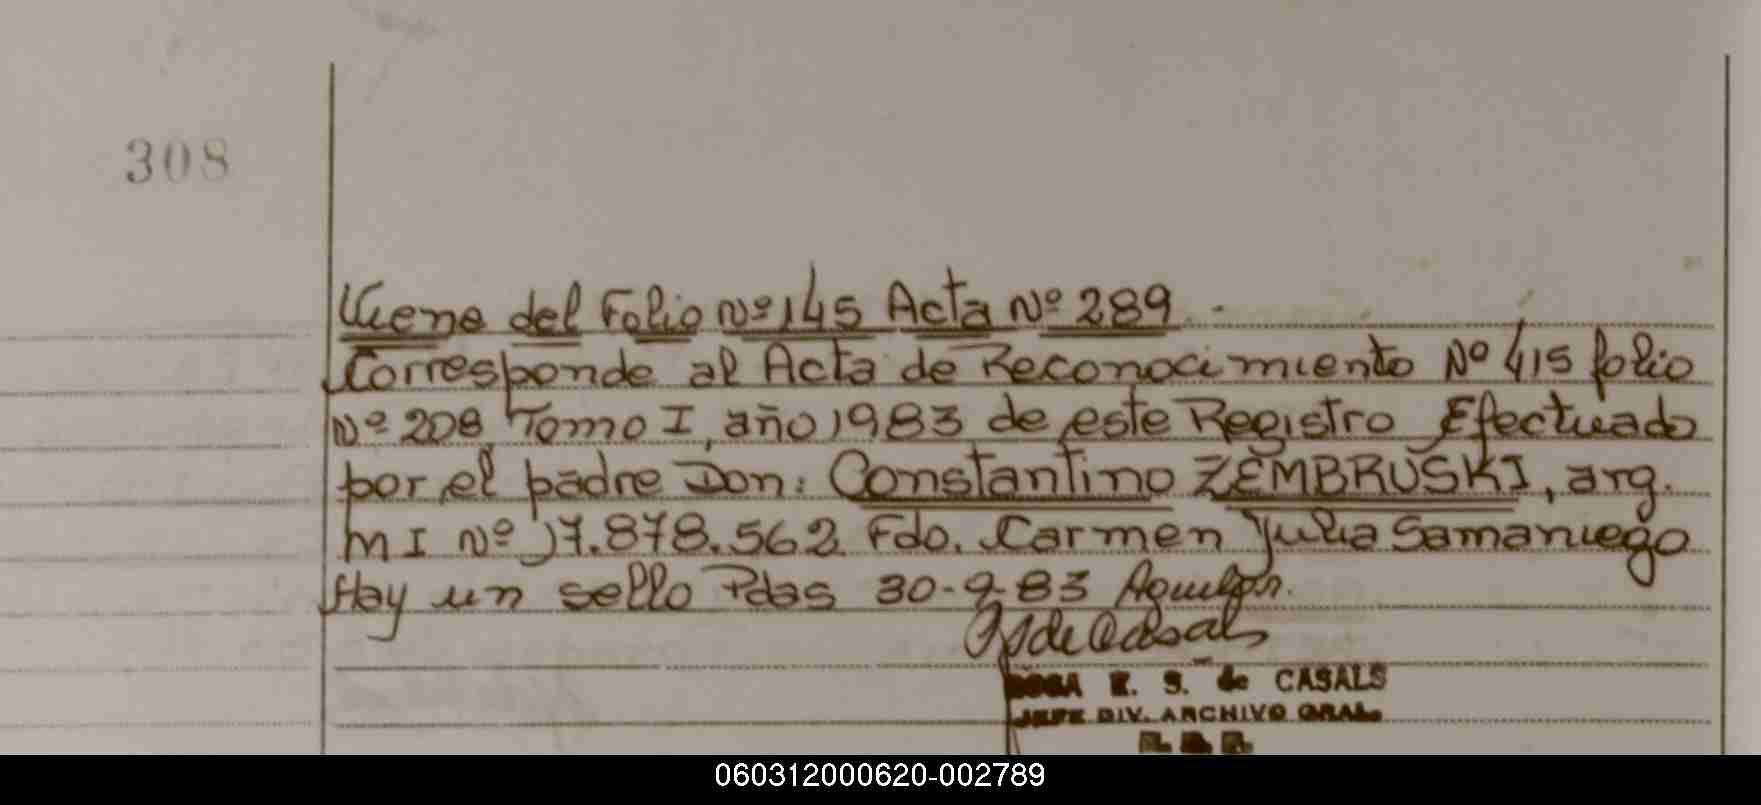 308
Viene del Folio Nº 145 Acta Nº 289.-
Corresponde al Acta de Reconocimiento Nº 415 folio
Nº 208, Tomo I, año 1983 de este Registro Efectuado
por el padre Don: Constantino ZEMBRUSKI, arg.
M I Nº 17.878.562 Fdo. Carmen Julia Samaniego
Hay un sello Pdas 30-9-83
de Casals
ROSA E. S. de CASALS
JEFE DIV. ARCHIVO GRAL.
060312000620-002789